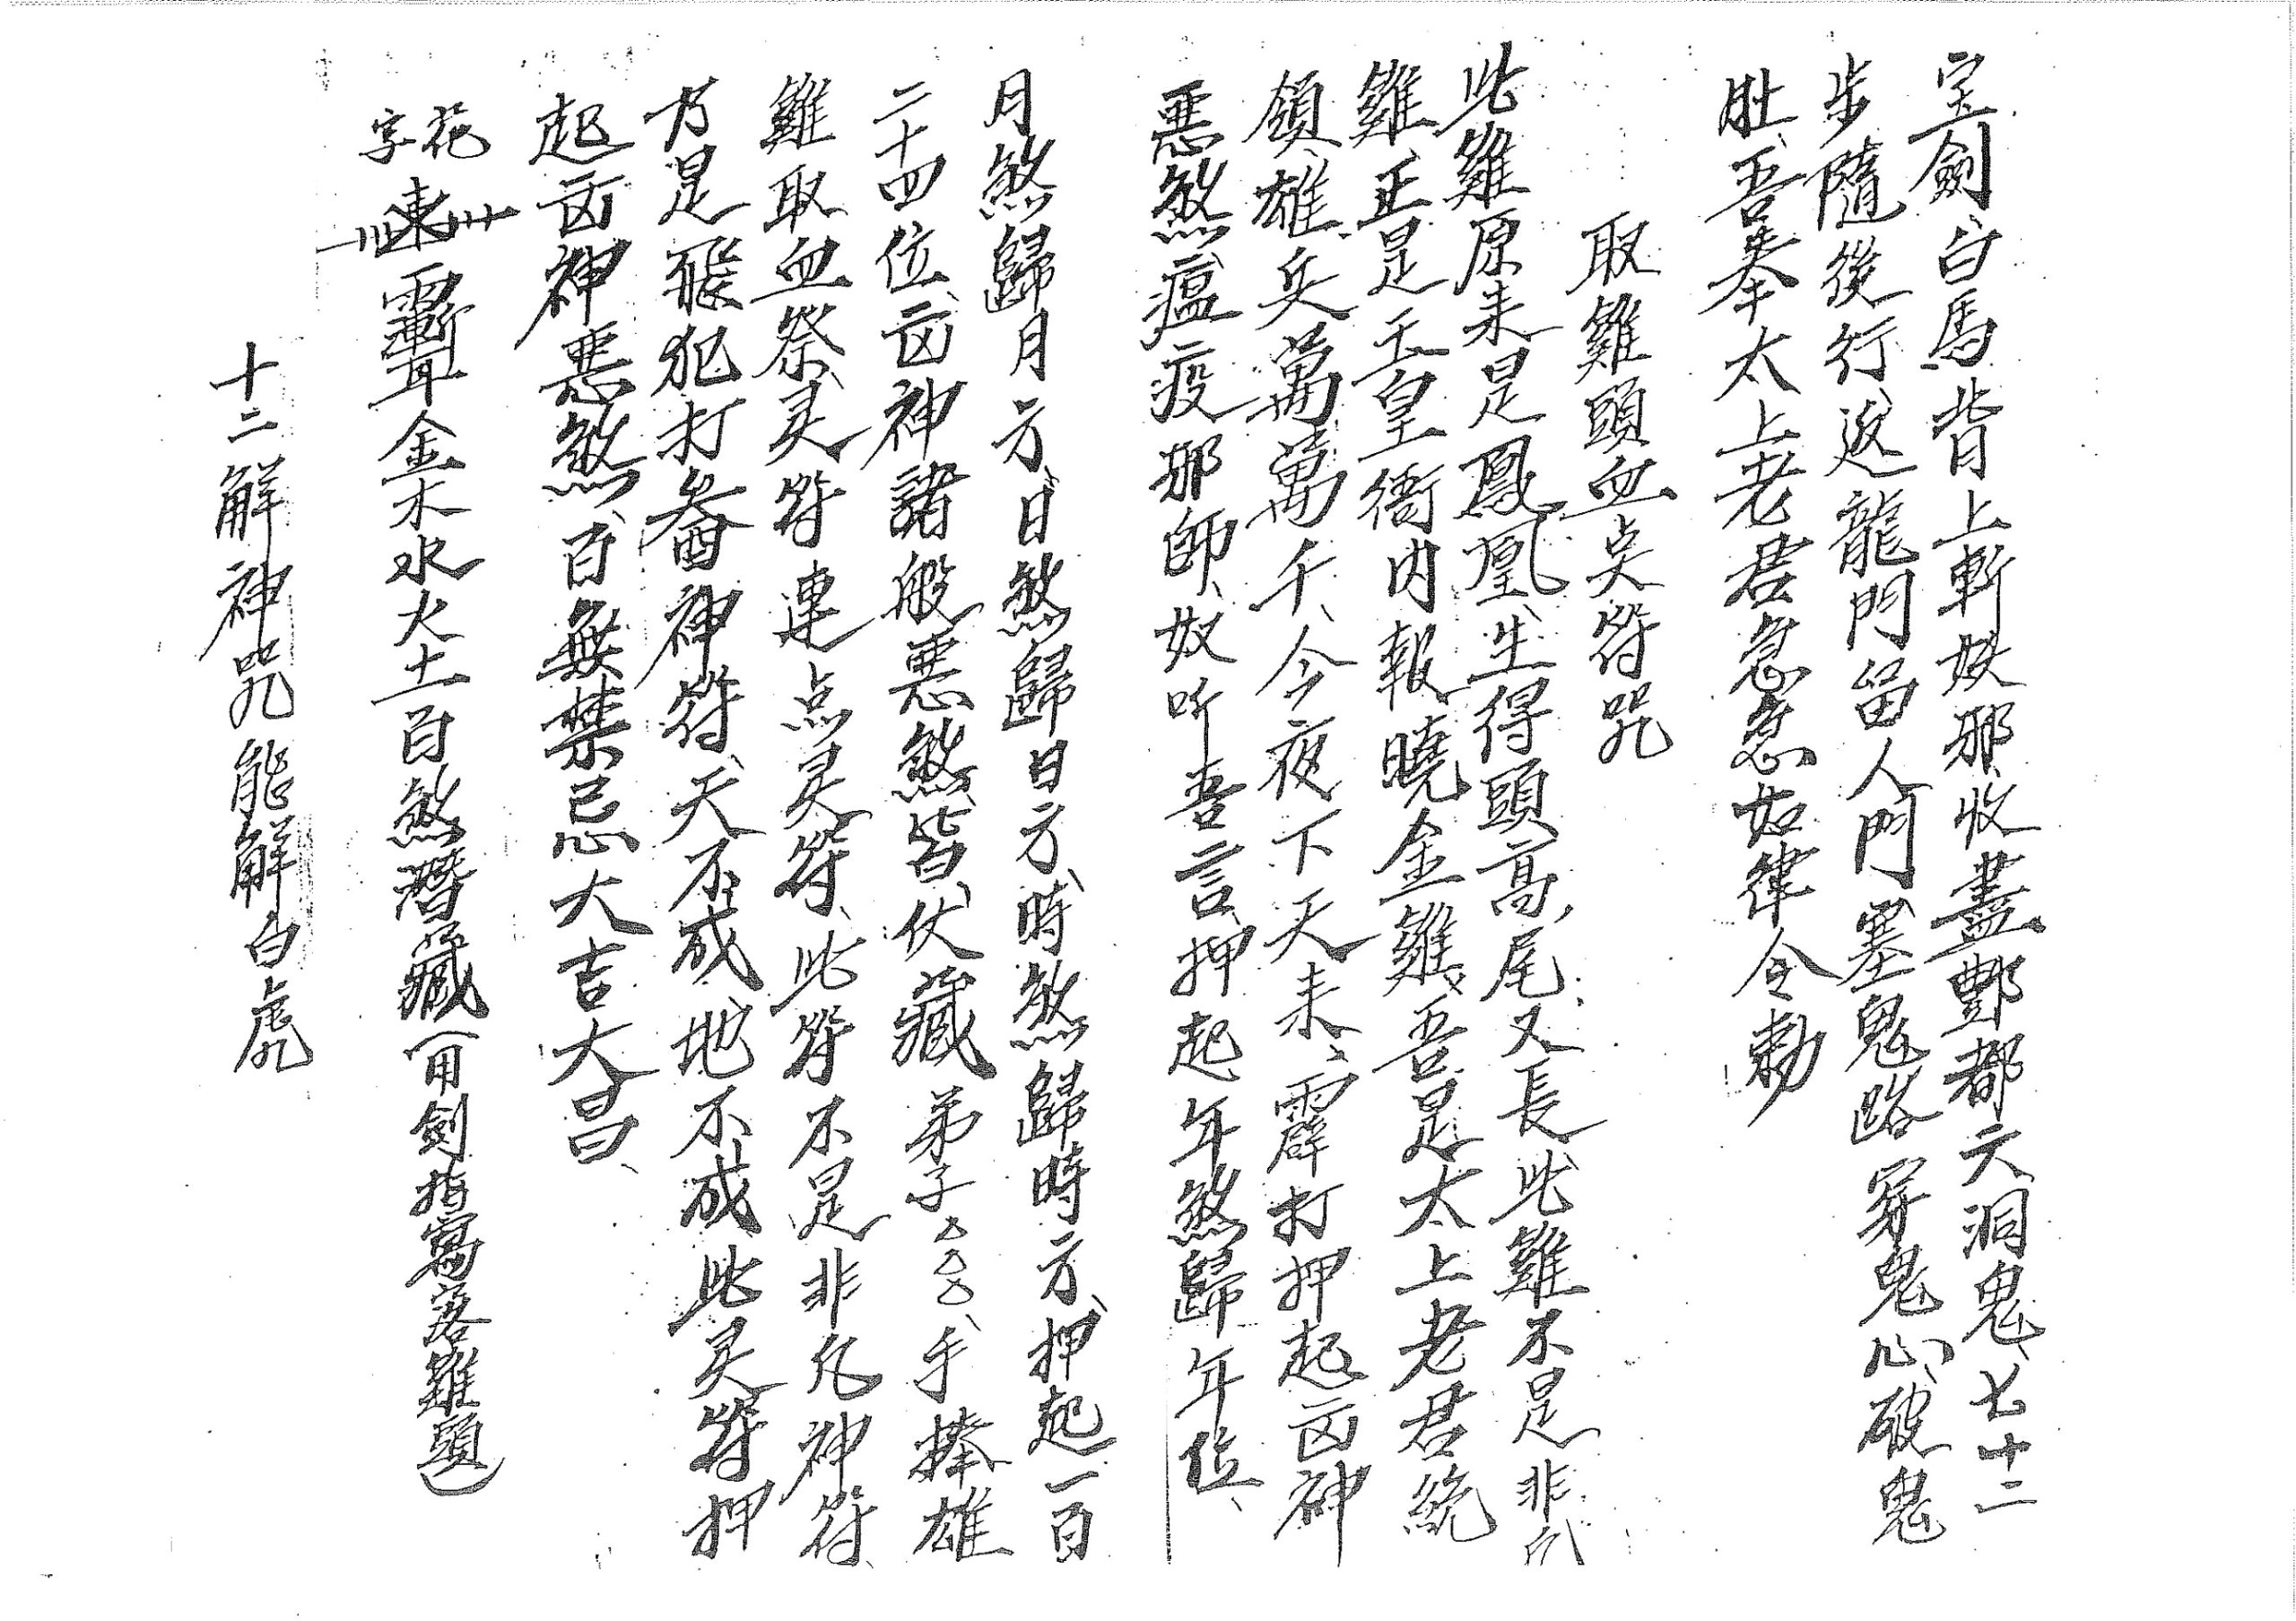 宝劍白馬背上斬妖邪收盡酆都六洞鬼、七十二
步隨後行、返龍門留人門塞鬼路穿鬼心破鬼
肚、吾奉太上老君急急如律令勅
取雞頭血点符咒
此雞原来是鳳凰、生得頭高、尾又長此雞不是非凡
雞、正是玉皇衙內報曉金雞、吾是太上老君統
領雄兵萬萬千、今夜下天来、霹打押起凶神
悪煞瘟疫邪師、奴听吾言、押起年煞歸年位、
月煞歸月方、日煞歸日方、時煞歸時方、押起一百
二十四位凶神諸般悪煞皆伏藏弟子△△△、手捧雄
雞取血祭灵符連点灵符、此符不是非凡神符
乃是飛犯打番神符、天不成地不成此灵符押
起凶神悪煞、百無禁忌大吉大昌、
花字 金木水火土百煞潛藏(用劍指寫落雞頭)
十二解神咒能解白虎